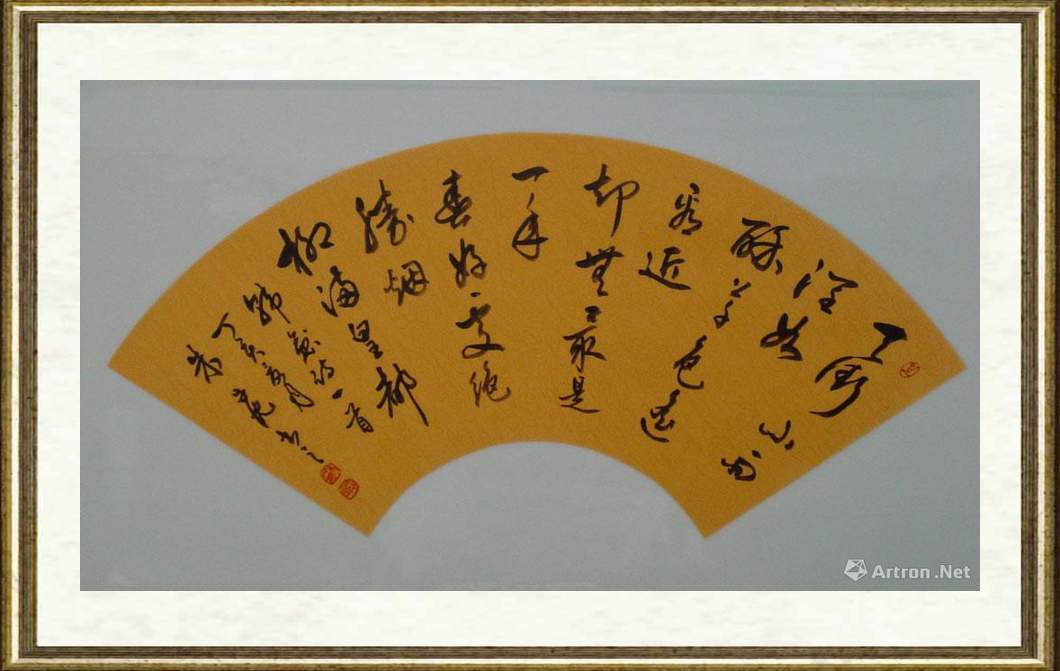 天街小雨
润如
酥草色遥
看近
却無最是
一年
春好处绝
胜烟
柳满皇都
韩愈诗一首
丁亥月
Artron.Net